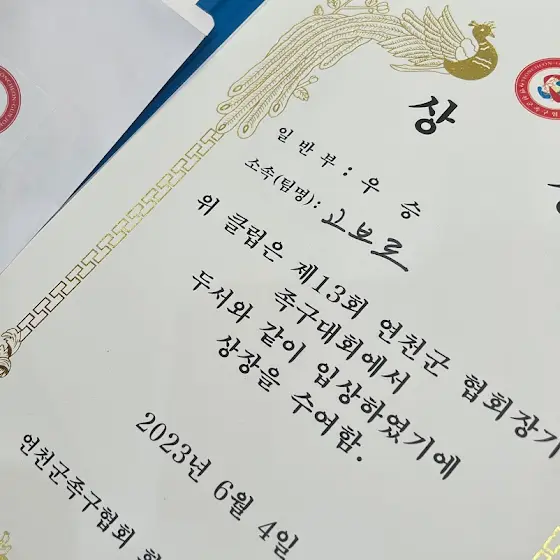 상
일 반 부 : 우 승
소속(팀명) : 고보로
위 클럽은 제13회 연천군 협회장기
족구대회에서
두서와 같이 입상하였기에
상장을 수여함.
2023년 6월 4일
연천군족구협회